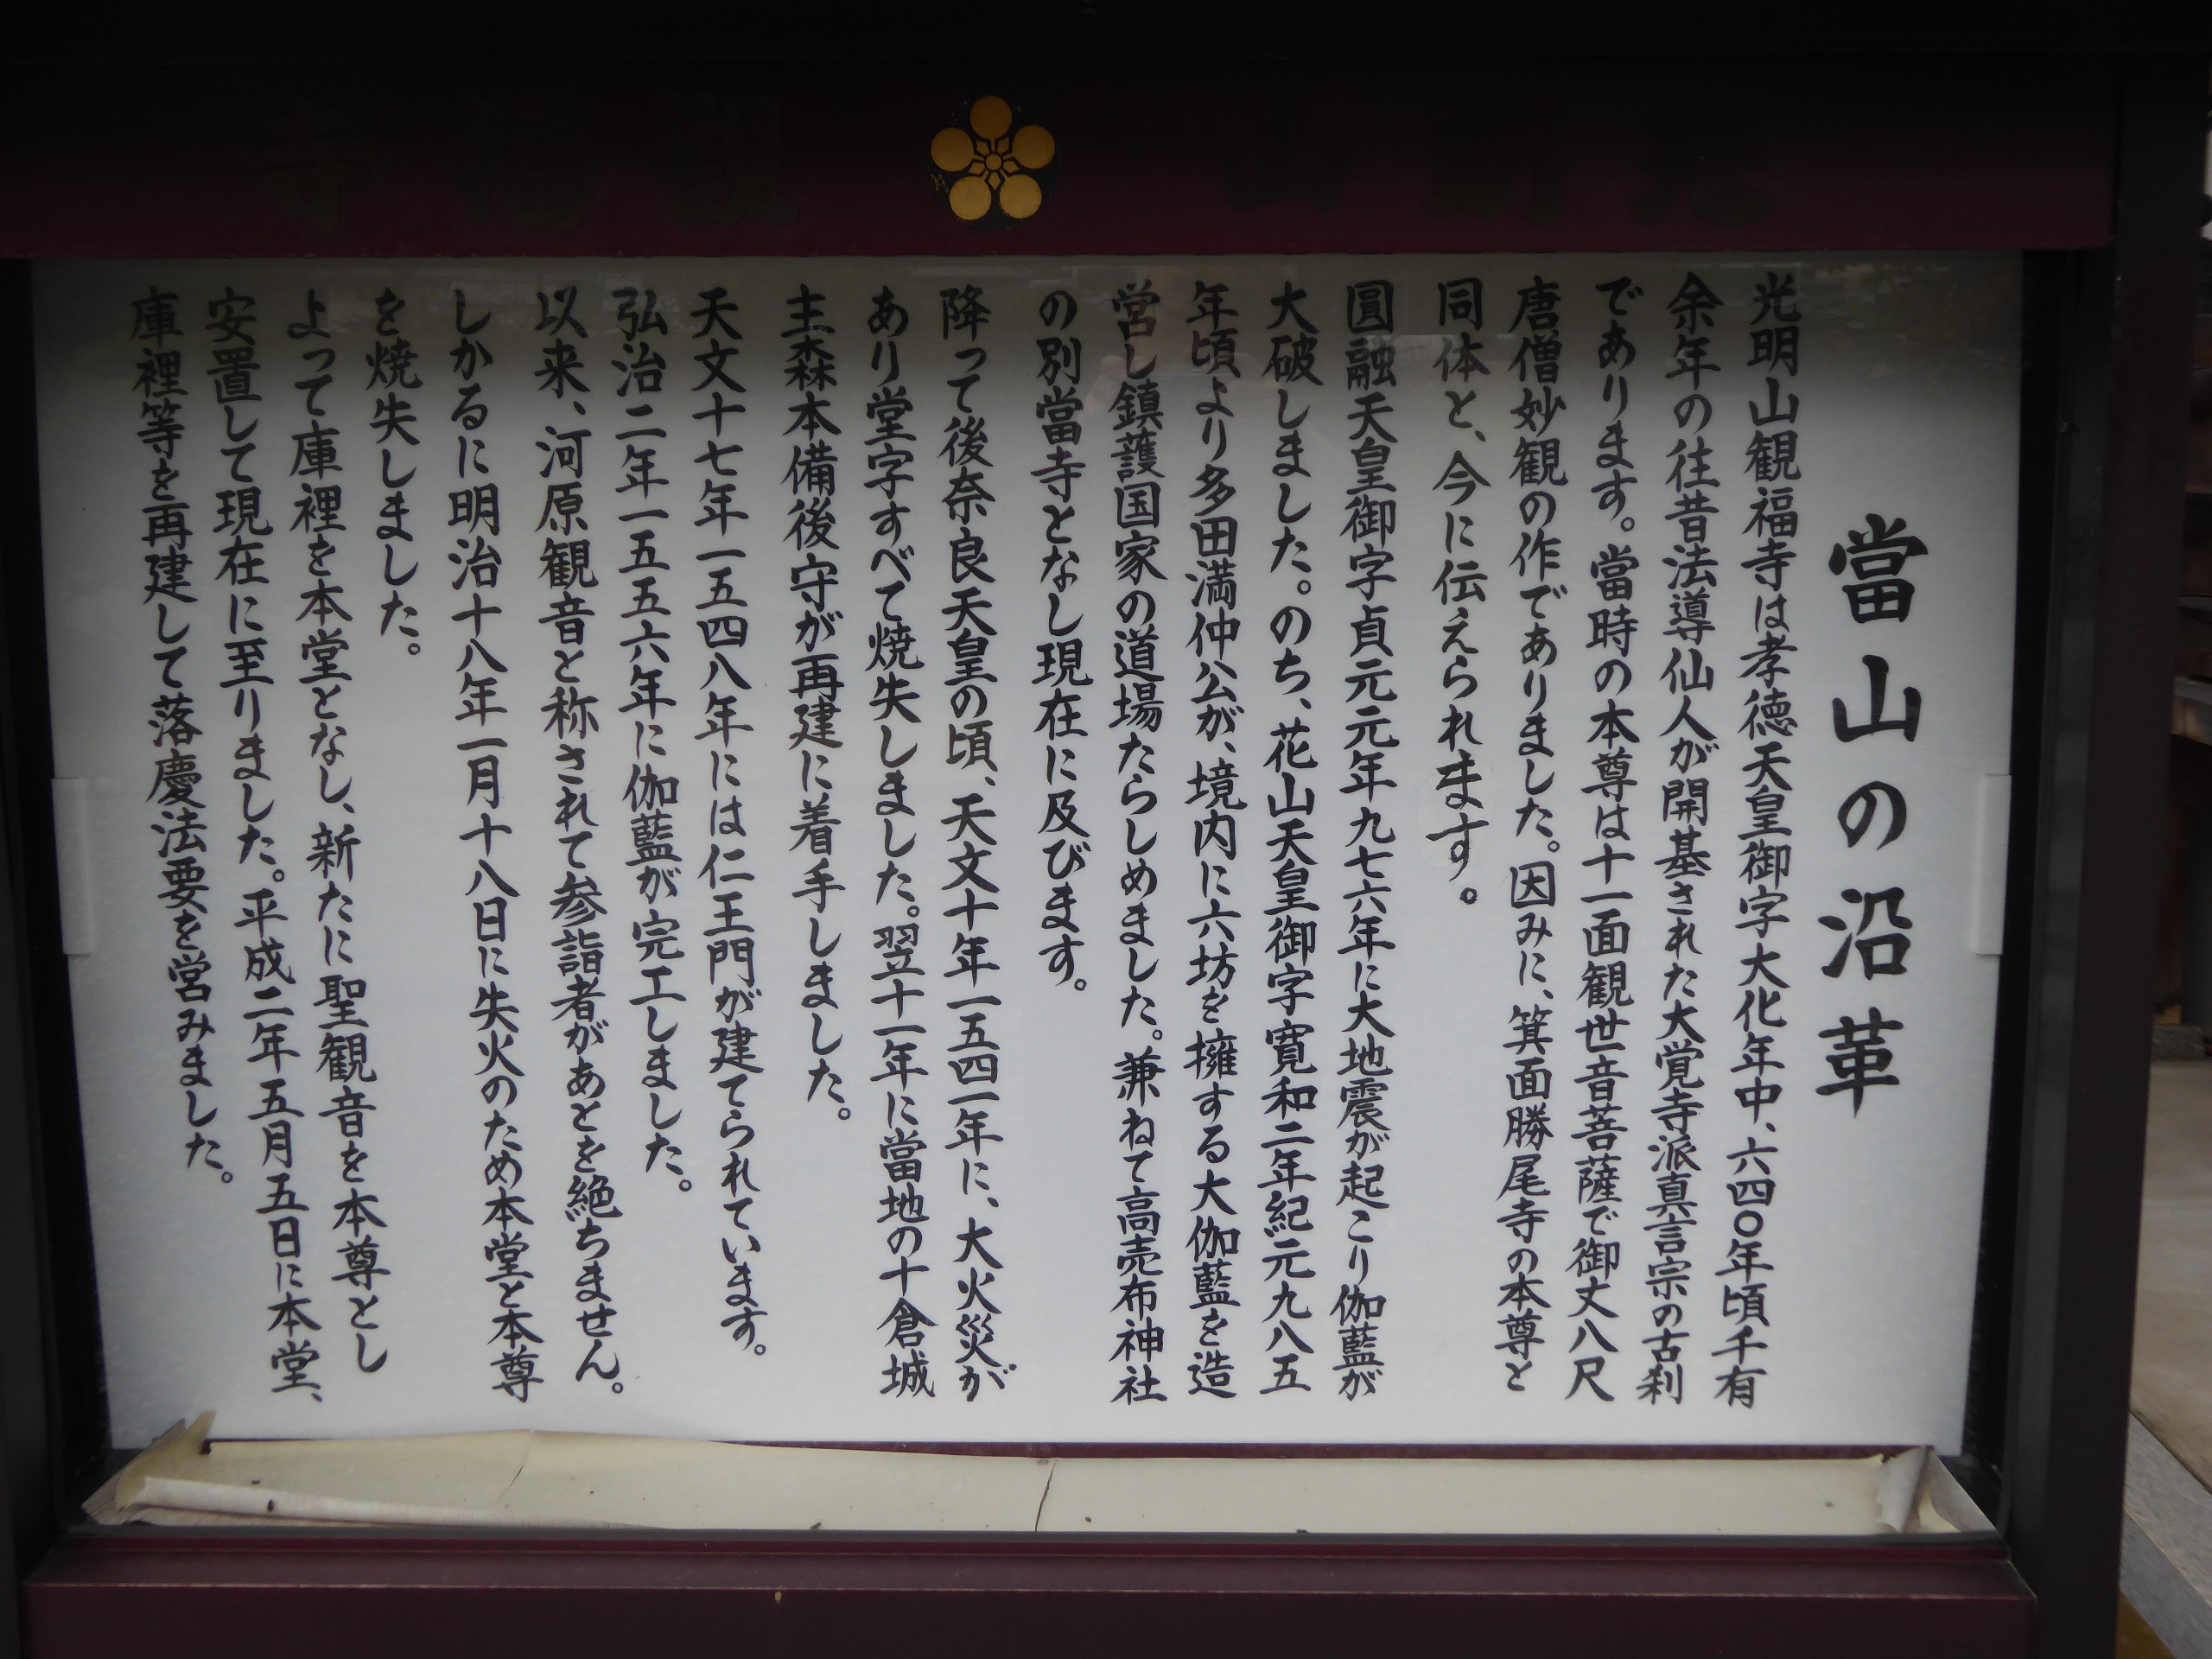 觀福寺
當山の沿革
光明山観福寺は孝徳天皇御字大化年中、六四〇年頃千有
余年の往昔法導仙人が開基された大覚寺派真言宗の古刹
であります。當時の本尊は十一面観世音菩薩で御丈八尺
唐僧妙観の作でありました。因みに、箕面勝尾寺の本尊と
同体と、今に伝えられます。
圓融天皇御字貞元元年九七六年に大地震が起こり伽藍が
大破しました。のち、花山天皇御字寛和二年紀元九八五
年頃より多田満仲公が、境内に六坊を擁する大伽藍を造
営し鎮護国家の道場たらしめました。兼ねて高売布神社
の別當寺となし現在に及びます。
降って後奈良天皇の頃、天文十年一五四一年に、大火災が
あり堂字すべて焼失しました。翌十一年に當地の十倉城
主森本備後守が再建に着手しました。
天文十七年一五四八年には仁王門が建てられています。
弘治二年一五五六年に伽藍が完工しました。
以来、河原観音と称されて参詣者があとを絶ちません。
しかるに明治十八年一月十八日に失火のため本堂と本尊
を焼失しました。
よって庫裡を本堂となし、新たに聖観音を本尊とし
安置して現在に至りました。平成二年五月五日に本堂、
庫裡等を再建して落慶法要を営みました。